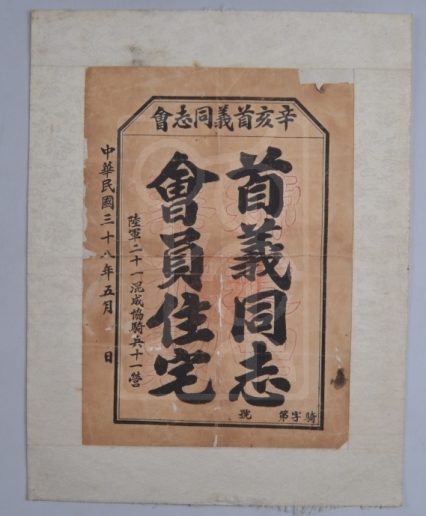 辛亥首義同志會
首義同志
會員住宅
陸軍二十一混成協騎兵十一營
騎字第
號
中華民國三十八年五月 日